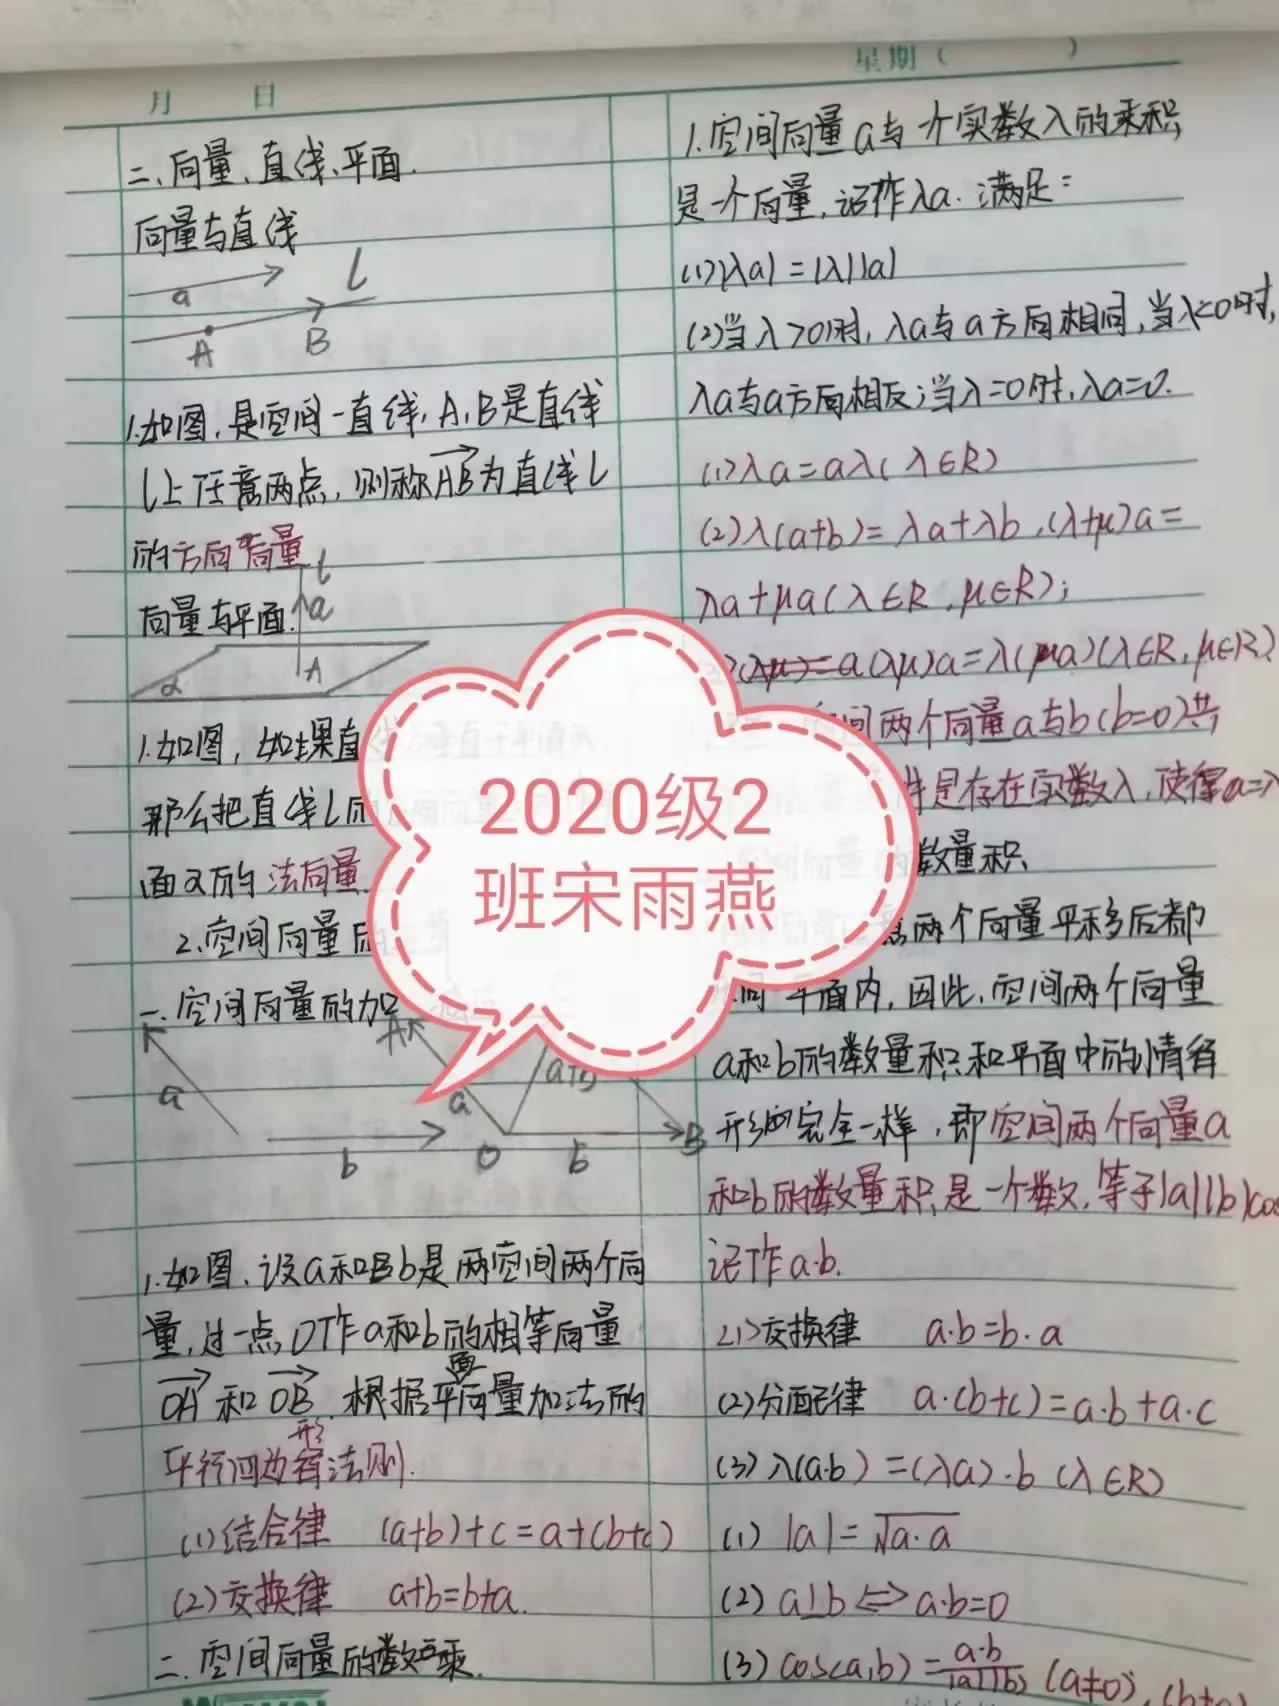 月 日
星期( )
二、向量、直线、平面.
向量与直线
a
l
A B
1.如图,是空间一直线,A,B是直线
l上任意两点,则称AB为直线l
的方向向量
向量与平面.
l
a
A
α
1.如图,如果直
那么把直线l的
面α的法向量.
2.空间向量的
一.空间向量的加
a
b
A
a
a+b
O b B
1.如图,设a和b是两空间两个向
量,过一点O作a和b的相等向量
OA和OB.根据平面向量加法的
平行四边形法则.
(1)结合律 (a+b)+c=a+(b+c)
(2)交换律 a+b=b+a.
二.空间向量的数乘.
1.空间向量a与个实数λ的乘积
是一个向量,记作λa.满足:
(1)|λa|=|λ||a|
(2)当λ>0时,λa与a方向相同,当λ<0时,
λa与a方向相反;当λ=0时,λa=0.
(1)λa=aλ(λ∈R)
(2)λ(a+b)=λa+λb,(λ+μ)a=
λa+μa(λ∈R,μ∈R);
(λμ)a=λ(μa)(λ∈R,μ∈R)
间两个向量a与b(b=0)共
件是存在实数λ,使得a=λ
数量积
两个向量平移后都
同一平面内,因此,空间两个向量
a和b的数量积和平面中的情
形完全一样,即空间两个向量a
和b的数量积是一个数,等于|a||b|cos
记作a·b.
(1)交换律 a·b=b·a
(2)分配律 a·(b+c)=a·b+a·c
(3)λ(a·b)=(λa)·b (λ∈R)
(1) |a|=√a·a
(2) a⊥b⇔a·b=0
(3) cos(a,b)=a·b/|a||b| (a≠0),
2020级2
班宋雨燕